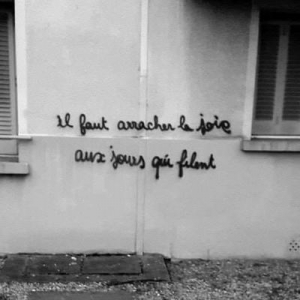 il faut arracher la joie
aux jours qui filent